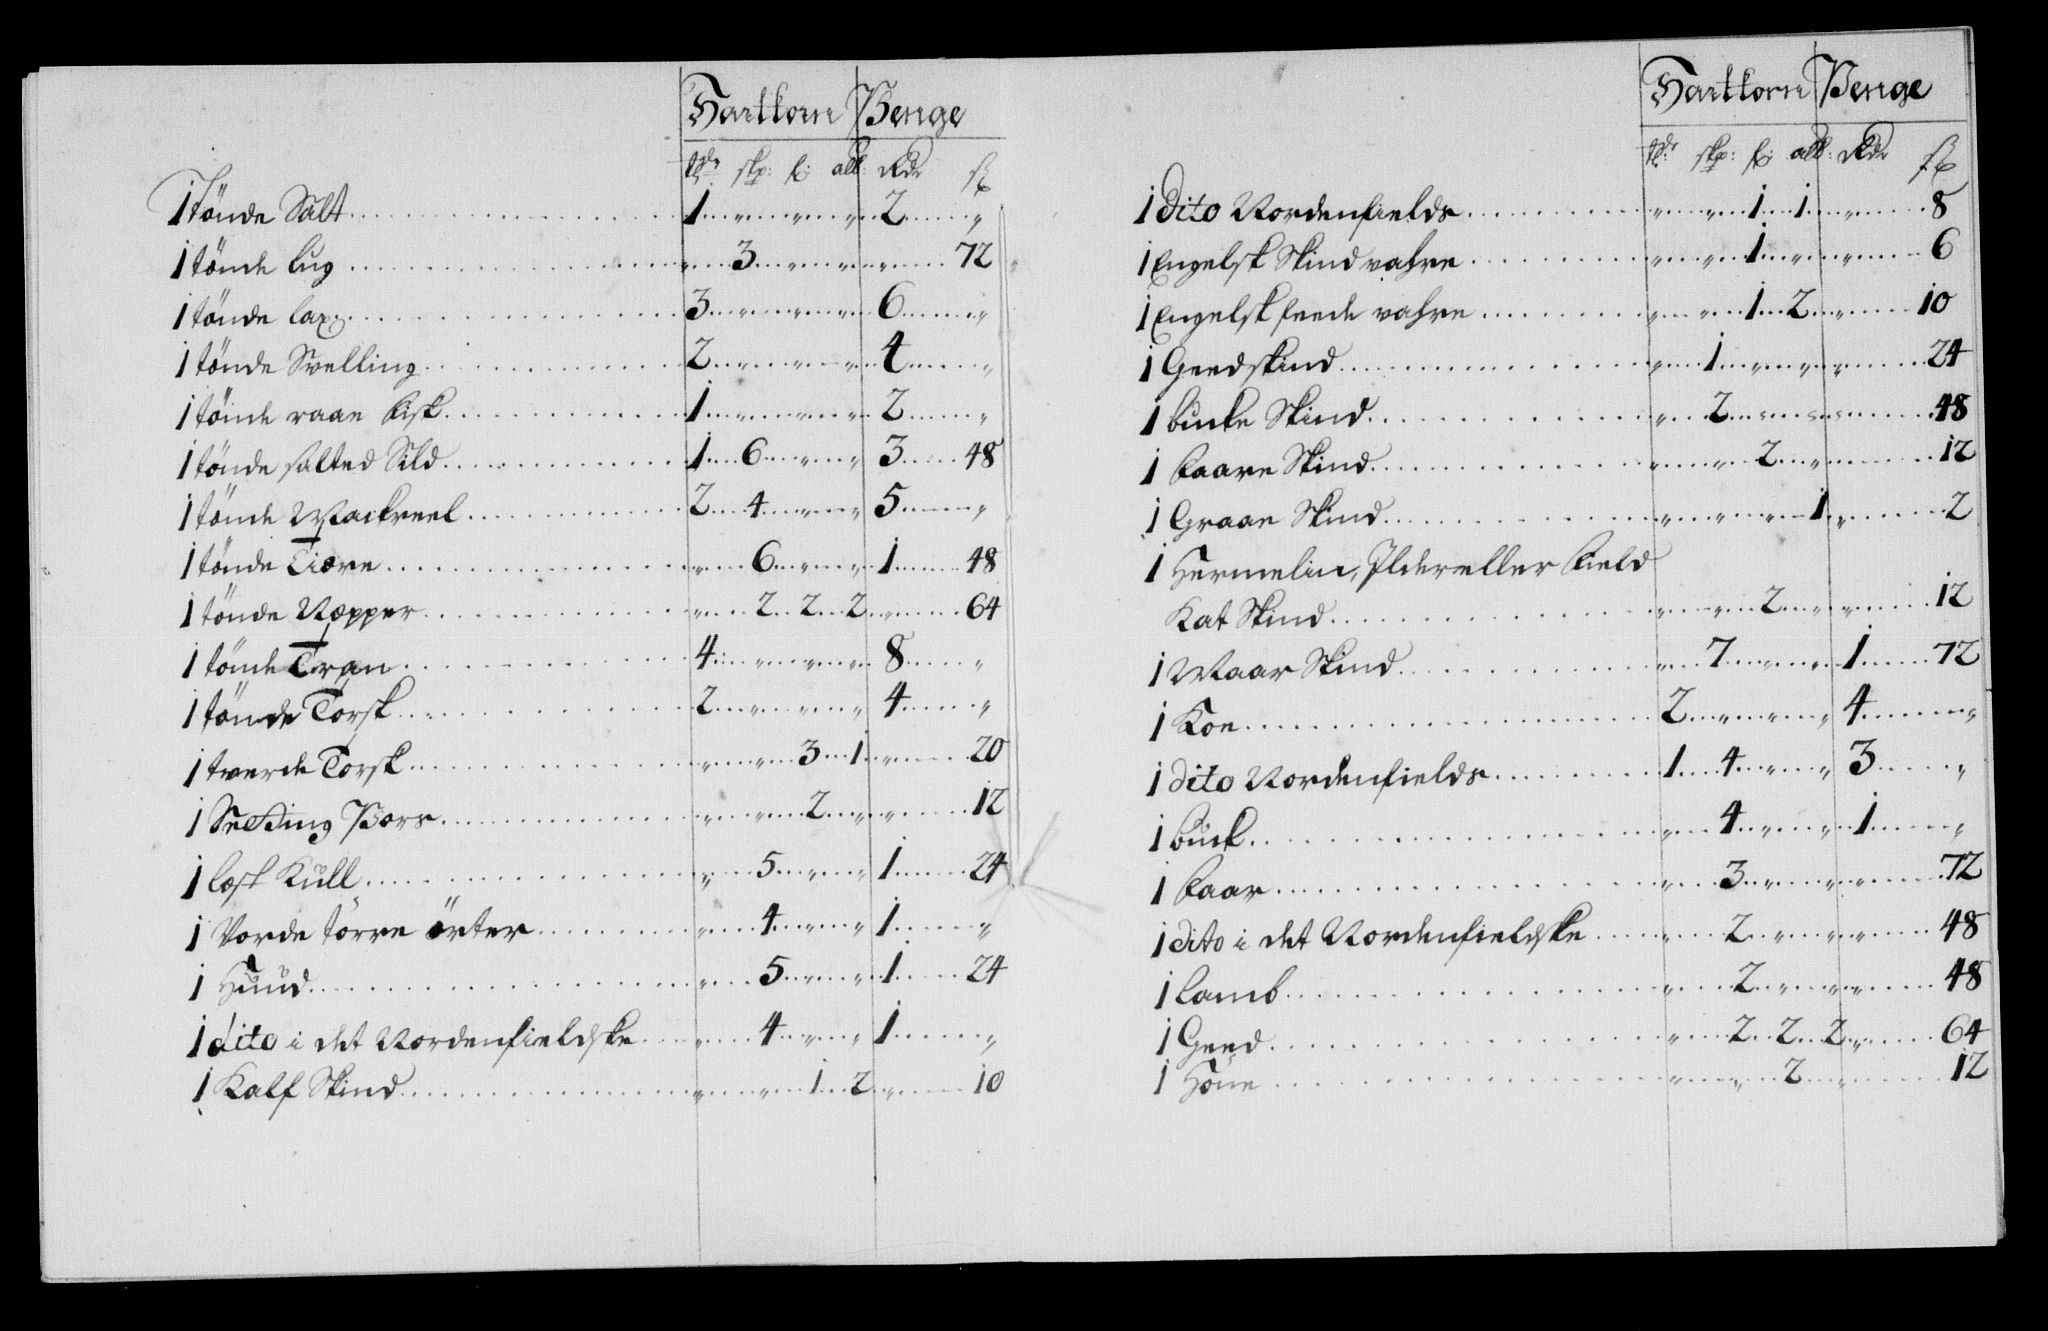 Hartkorn Penge
tdr skp: fi: alb: Rdr ß
1 tönde Salt 1 " " " 2 "
1 tönde lug " 3 " " " 72
1 tönde lax 3 " " " 6 "
1 tönde Qvelling 2 " " " 4 "
1 tönde raae fisk 1 " " " 2 "
1 tönde salted Sild 1 6 " " 3 48
1 tönde Mackreel 2 4 " " 5 "
1 tönde Tiære " 6 " " 1 48
1 tönde Næpper " 2 2 2 " 64
1 tönde Tran 4 " " " 8 "
1 tönde Torsk 2 " " " 4 "
1 tverde Torsk " " 3 1 " 20
1 Setting Pors " " 2 " " 12
1 læst Kull " 5 " " 1 24
1 Vorde törre örter " 4 " " 1 "
1 Huud " 5 " " 1 24
1 dito i det Nordenfieldske " 4 " " 1 "
1 Kalf Skind " " 1 2 " 10
Hartkorn Penge
tdr skp: fi: alb: Rdr ß
1 dito Nordenfields " " 1 1 " 8
1 Engelsk Skind vahre " " 1 " " 6
1 Engelsk feede vahre " " 1 2 " 10
1 Geedskind " 1 " " " 24
1 bucke Skind " 2 " " " 48
1 faare Skind " " 2 " " 12
1 Graae Skind " " " 1 " 2
1 Hermelin, Ilder eller field
Kat Skind " " 2 " " 12
1 Maar Skind " 7 " " 1 72
1 Koe 2 " " " 4 "
1 dito Nordenfields 1 4 " " 3 "
1 buck " 4 " " 1 "
1 faar " 3 " " " 72
1 dito i det Nordenfieldske " 2 " " " 48
1 lamb " 2 " " " 48
1 Geed " 2 2 2 " 64
1 Höne " " 2 " " 12